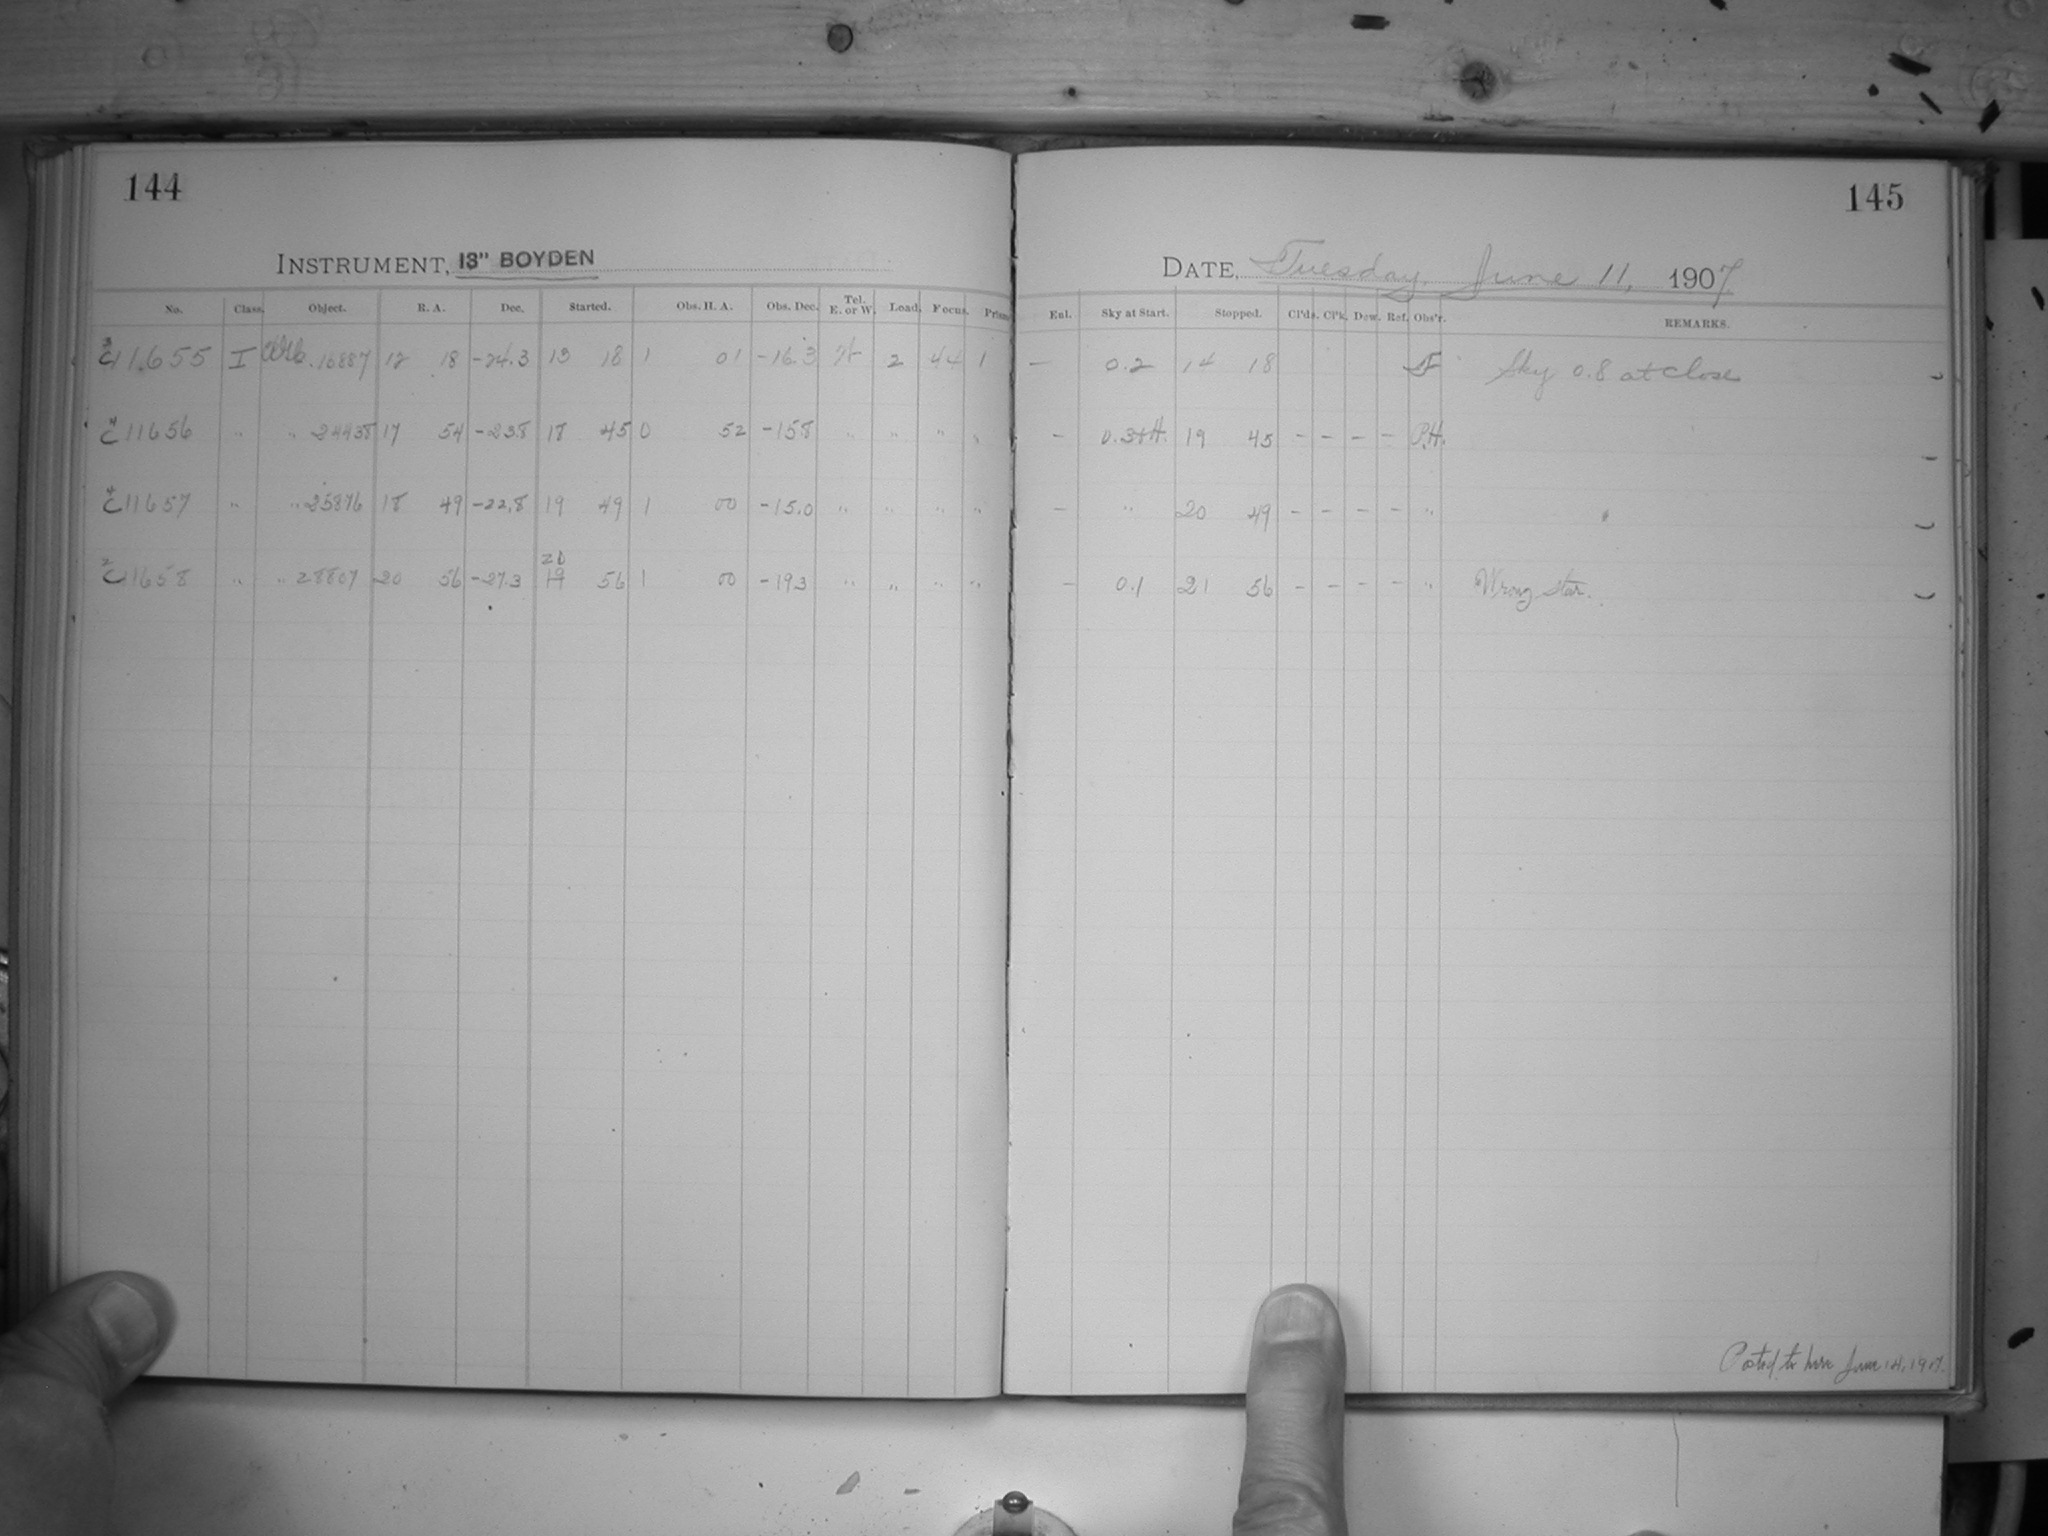 144
INSTRUMENT, 13" BOYDEN
No. Class. Object. R. A. Dec. Started. Obs. H. A. Obs. Dec. Tel. E. or W. Load. Focus. Prism
3 C11655 I 16887 12 18 -24.3 13 18 1 01 -16.3 2 44 1
4 C11656 " " 24438 17 54 -23.8 18 45 0 52 -15.8 " " " "
4 C11657 " " 25876 18 49 -22.8 19 49 1 00 -15.0 " " " "
20
2 C11658 " " 28807 20 56 -27.3 19 56 1 00 -19.3 " " " "
145
DATE, Tuesday, June 11, 1907
Enl. Sky at Start. Stopped. Cl'ds. Cl'k. Dew. Ref. Obs'r. REMARKS.
— 0.2 14 18 Sky 0.8 at close
– 0.3+H. 19 45 – – – – P.H.
– " 20 49 – – – – "
– 0.1 21 56 – – – – " Wrong star.
Posted to here June 14, 1907.